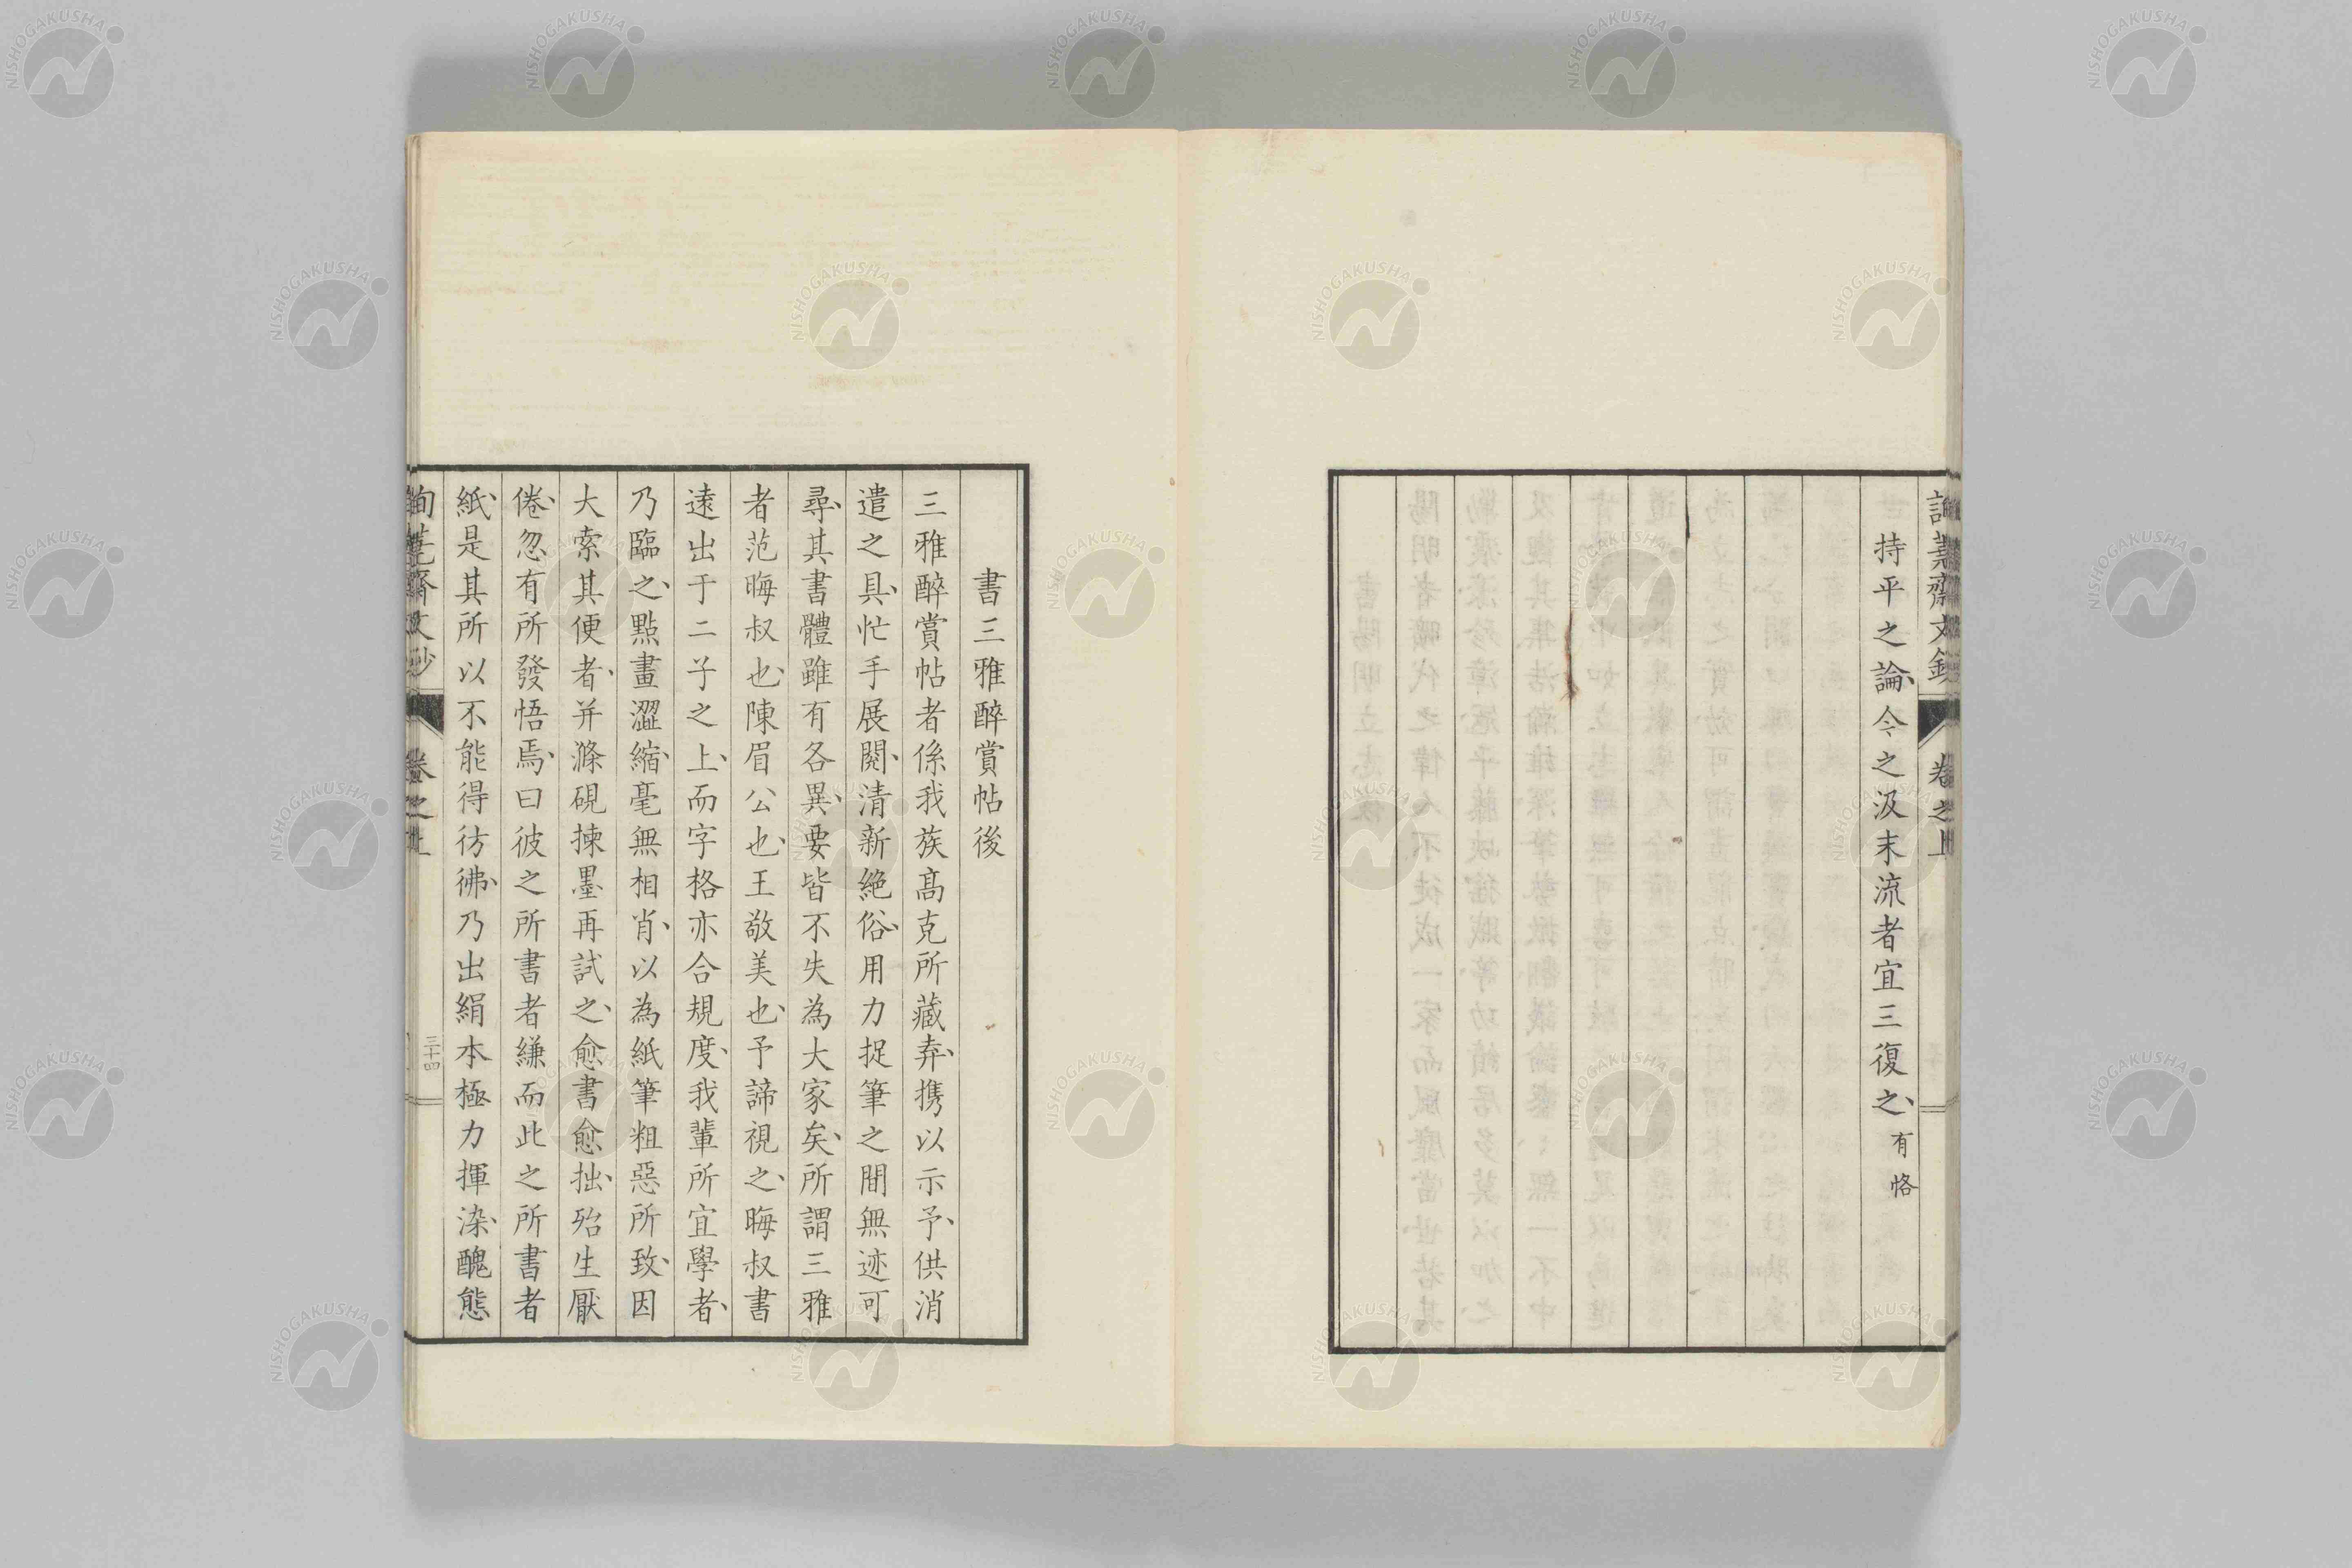 持平之論、今之汲末流者宜三復之、有恪
文鈔 卷之上
書三雅醉賞帖後
三雅醉賞帖者係我族髙克所藏弆、携以示予、供消
遣之具、忙手展閱、清新絶俗、用力捉筆之間無迹可
尋、其書體雖有各異、要皆不失為大家矣、所謂三雅
者范晦叔也、陳眉公也、王敬美也、予諦視之、晦叔書
遠出于二子之上、而字格亦合規度、我輩所宜學者、
乃臨之、點畫澀縮、毫無相肖、以為紙筆粗惡所致、因
大索其便者、并滌硯揀墨再試之、愈書愈拙、殆生厭
倦、忽有所發悟焉、曰彼之所書者縑而此之所書者
紙、是其所以不能得彷彿、乃出絹本極力揮染、醜態
齋文鈔 卷之上 三十四
NISHOGAKUSHA